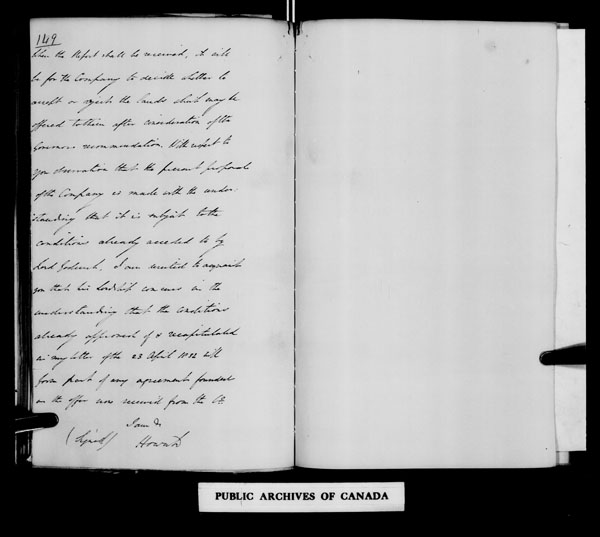 149
When the Report shall be received, it will
be for the Company to decide whether to
accept or reject the lands which may be
offered to them after consideration of the
Governors recommendation. With respect to
your observation that the present proposal
of the Company is made with the under
standing that it is subject to the
conditions already acceded to by
Lord Goderich, I am directed to acquaint
you that his Lordship concurs in the
understanding that the conditions
already approved of & recapitulated
in my letter of the 23 April 1832 will
form part of any agreement founded
on the offer now received from the Co
I am &c
(Signed) Howick
PUBLIC ARCHIVES OF CANADA